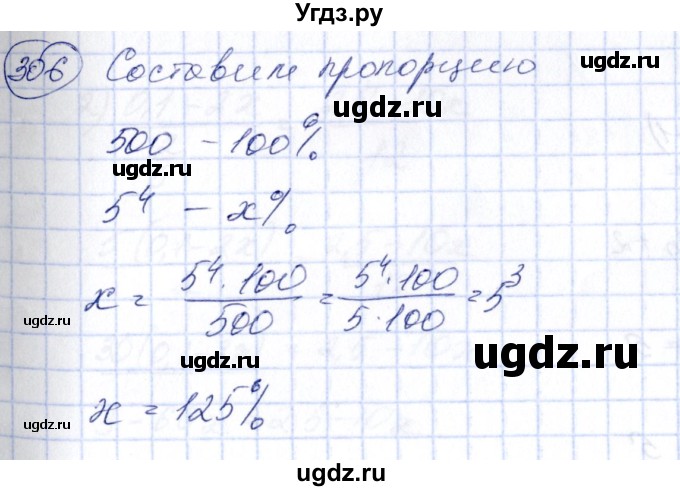 Угдз.ру
306 Составим пропорцию
ugdz.ru ugdz.ru
500 – 100%
ugdz.ru
5⁴ – x%
x = 5⁴·100/500 = 5⁴·100/5·100 = 5³
ugdz.ru
ugdz.ru ugdz.ru
x = 125%
ugdz.ru
ugdz.ru
ugdz.ru